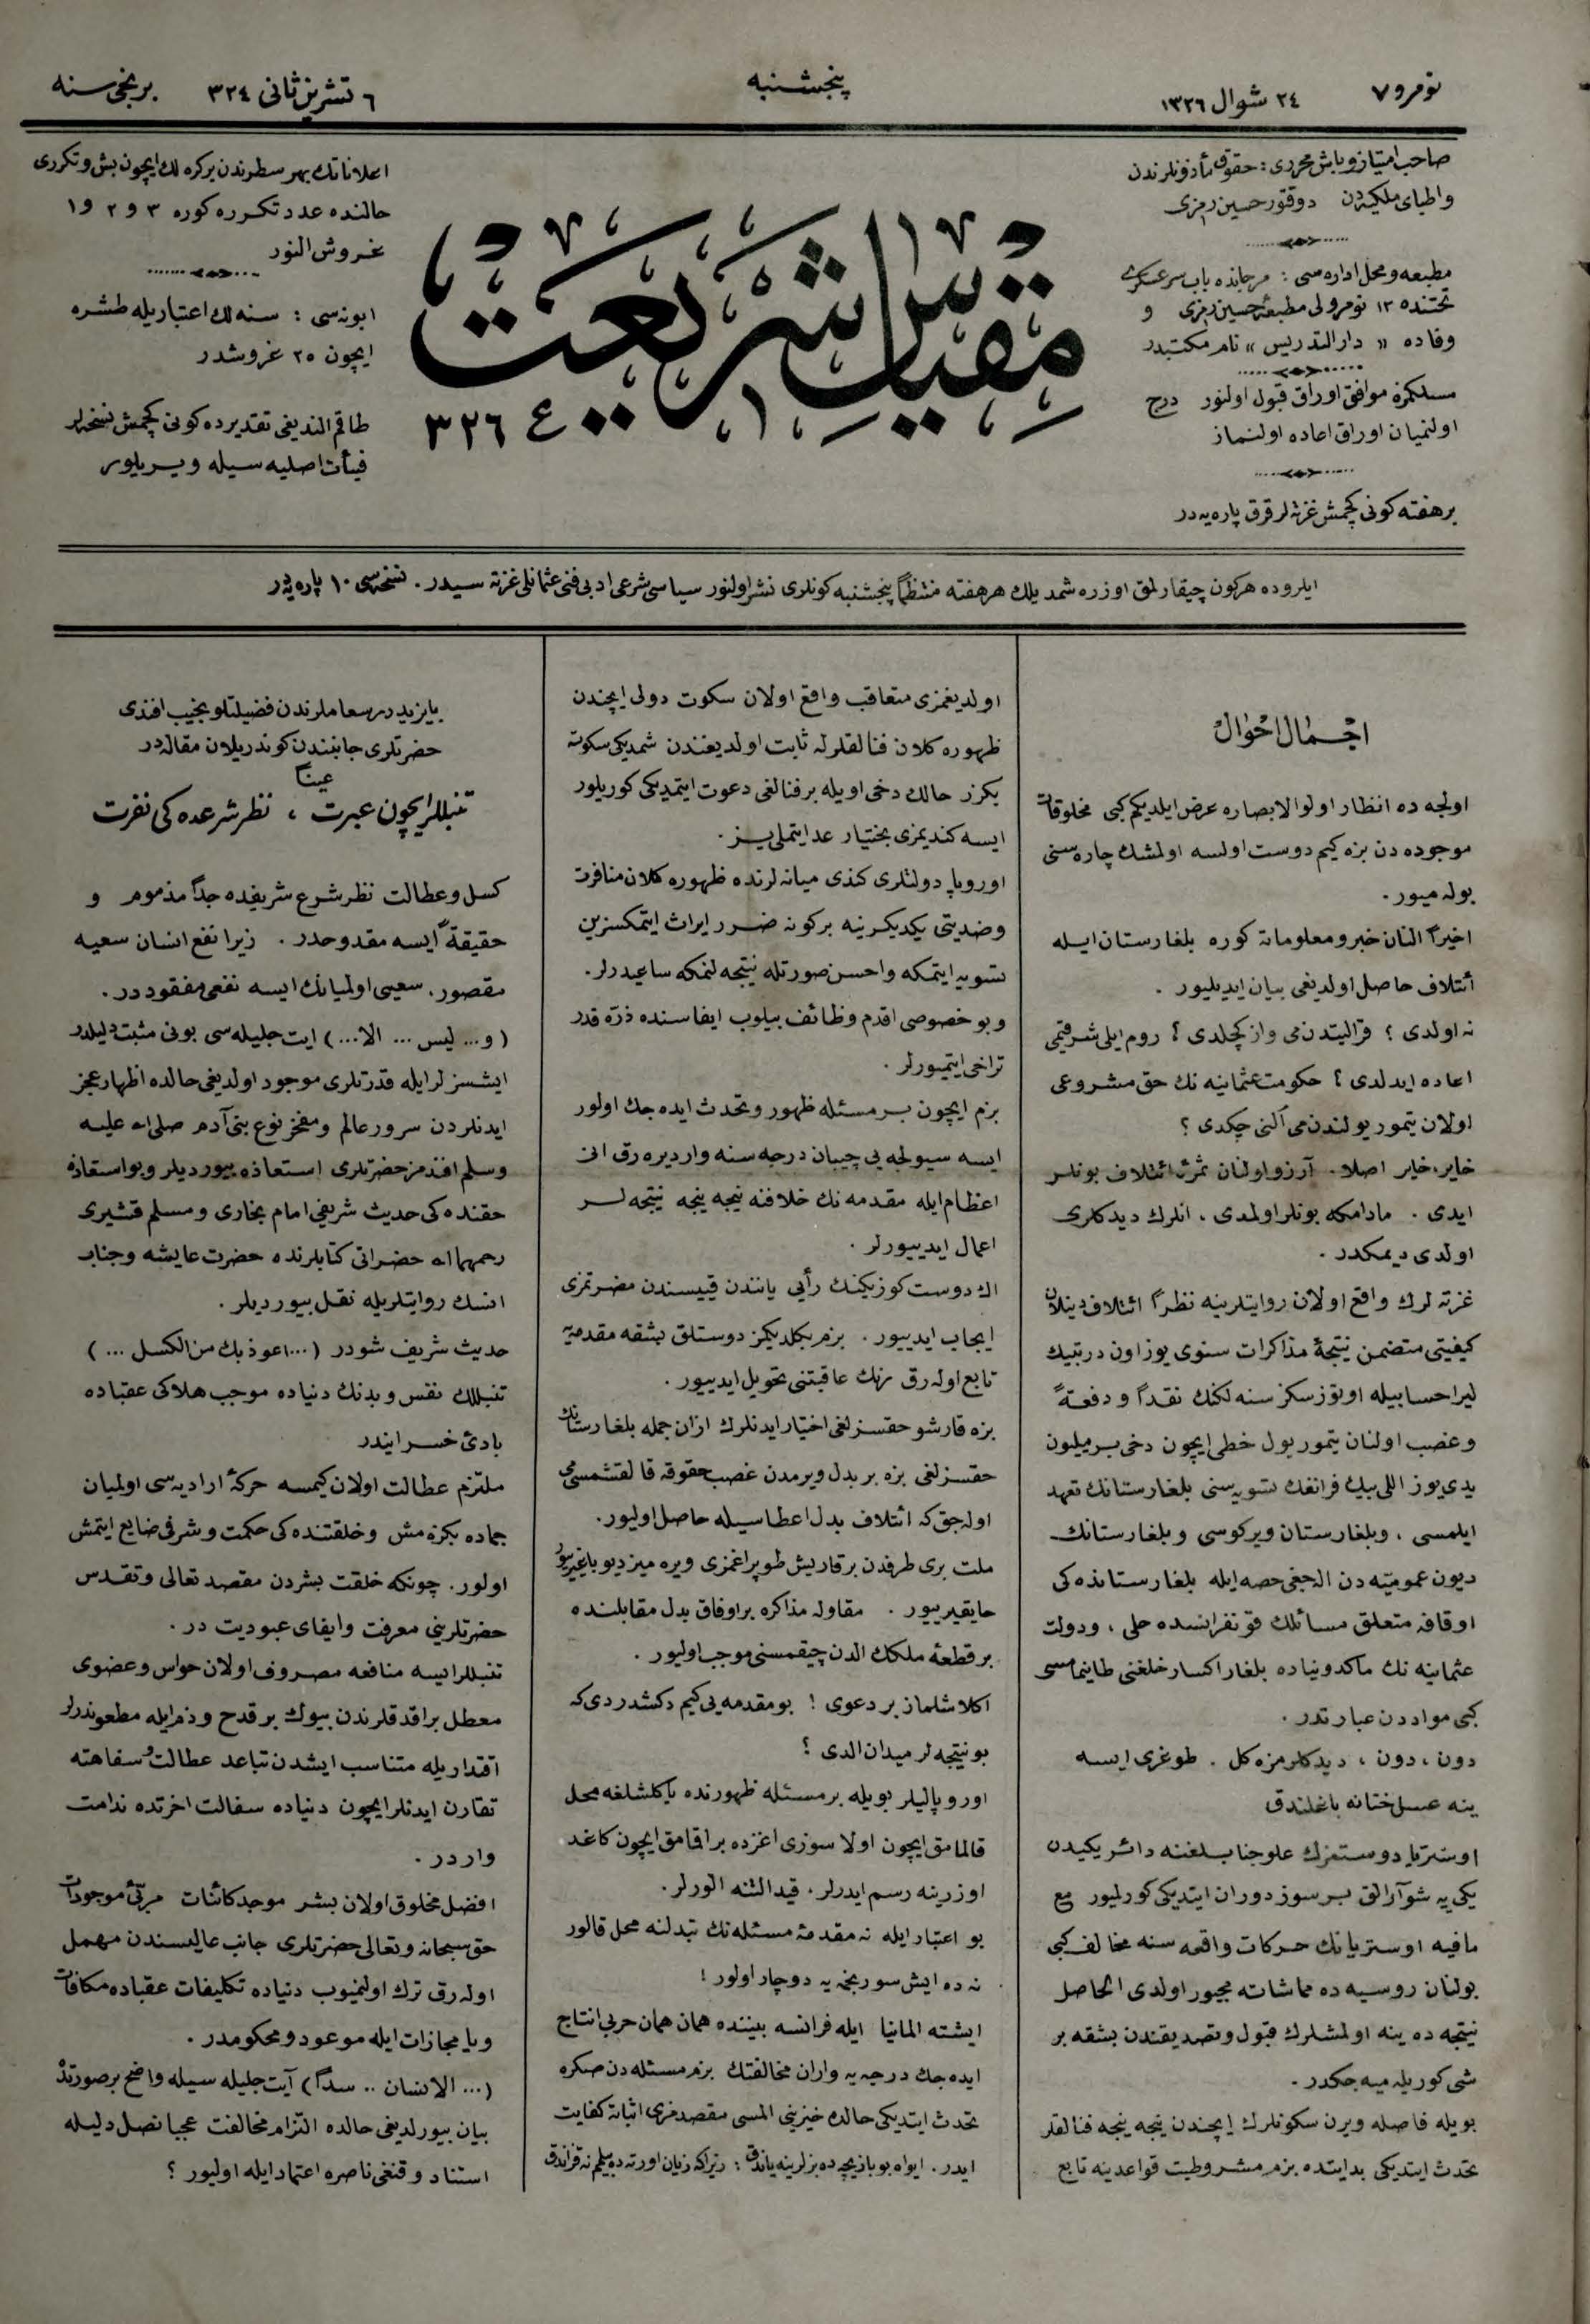 نومرو ٧
٢٤ شوال ١٣٢٦
پنجشنبه
٦ تشرین ثانی ٣٢٤
برنجی سنه
صاحب امتیاز و باش محرری : حقوق مأذونلرندن
واطبای ملکیه‌دن دوقتور حسین رمزی
مطبعه و محل اداره‌سی : مرجانده باب سرعسکری
تحتنده ١٣ نومرولی مطبعهٔ حسین رمزی و
وفاده « دار التدریس » نام مکتبدر
مسلکمزه موافق اوراق قبول اولنور درج
اولنمیان اوراق اعاده اولنماز
بر هفته کونی کچمش غزته‌لر قرق پاره‌یه‌در
مقیاس شریعت
٣٢٦
اعلاناتك بهر سطرندن بر کره‌لك ایچون بش و تکرری
حالنده عدد تکرره کوره ٣ و ٢ و ١
غروش النور
ابونه‌سی : سنه‌لك اعتباریله طشره
ایچون ٢٥ غروشدر
طاقم الندیغی تقدیرده کونی کچمش نسخه‌لر
فیأت اصلیه‌سیله ویریلور
ایلروده هرکون چیقارلمق اوزره شمدیلك هر هفته منتظماً پنجشنبه کونلری نشر اولنور سیاسی شرعی ادبی فنی عثمانلی غزته‌سیدر . نسخه‌سی ١٠ پاره‌یه‌در
اجمال احوال
اولجه ده انظار اولوالابصاره عرض ایلدیکم کبی مخلوقات
موجوده‌دن بزه کیم دوست اولسه اولمشك چاره‌سنی
بوله‌میور .
اخیراً النان خبر و معلوماته کوره بلغارستان ایله
ائتلاف حاصل اولدیغی بیان ایدیلیور .
نه اولدی ؟ قرالیتدن می واز کچلدی ؟ روم ایلی شرقیمی
اعاده ایدلدی ؟ حکومت عثمانیه نك حق مشروعی
اولان تیمور یولندن می النی چکدی ؟
خایر، خایر اصلا . آرزو اولنان ثمرهٔ ائتلاف بونلر
ایدی . مادامکه بونلر اولمدی ، انلرك دیدکلری
اولدی دیمکدر .
غزته‌لرك واقع اولان روایتلرینه نظراً ائتلاف دینلان
کیفیتی متضمن نتیجهٔ مذاکرات سنوی یوز اون درت بیك
لیرا حسابیله اوتوز سکز سنه‌لکنك نقداً و دفعةً
وغصب اولنان تیمور یول خطی ایچون دخی بر میلیون
یدی یوز اللی بیك فرانغك تسویه‌سنی بلغارستانك تعهد
ایلمسی ، وبلغارستان ویرکوسی وبلغارستانك
دیون عمومیه‌دن اله‌جغی حصه ایله بلغارستانده کی
اوقافه متعلق مسائلك قونفرانسده حلی ، ودولت
عثمانیه نك ماکدونیاده بلغار اکسارخلغنی طانیمامسی
کبی مواددن عبارتدر .
دون ، دون ، دیدکلرمزه کل . طوغری ایسه
ینه عسلختانه باغلندق
اوستریا دوستمزك علوجنابلغنه دائر یکیدن
یکی یه شو آرالق بر سوز دوران ایتدیکی کورلیور مع
مافیه اوستریانك حرکات واقعه‌سنه مخالف کبی
بولنان روسیه ده مماشاته مجبور اولدی الحاصل
نتیجه ده ینه اولمشلرك قبول وتصدیقندن بشقه بر
شی کوریله‌میه‌جکدر .
بویله فاصله ویرن سکوتلرك ایچندن نیجه نیجه فنالقلر
تحدث ایتدیکی بدایتده بزم مشروطیت قواعدینه تابع
اولدیغمزی متعاقب واقع اولان سکوت دولی ایچندن
ظهوره کلان فنالقلرله ثابت اولدیغندن شمدیکی سکوته
بکزر حالك دخی اویله بر فنالغی دعوت ایتمدیکی کوریلور
ایسه کندیمزی بختیار عد ایتملی‌یز .
اوروپا دولتلری کندی میانه‌لرنده ظهوره کلان منافرت
وضدیتی یکدیکرینه برکونه ضرر ایراث ایتمکسزین
تسویه ایتمکه واحسن صورتله نتیجه‌لنمکه ساعیدرلر .
وبو خصوصی اقدم وظائف بیلوب ایفاسنده ذره قدر
تراخی ایتمیورلر .
بزم ایچون بر مسئله ظهور وتحدث ایده جك اولور
ایسه سیولجه یی چیبان درجه‌سنه واردیره‌رق انی
اعظام ایله مقدمه نك خلافنه نیجه نیجه نتیجه لر
اعمال ایدییورلر .
اك دوست کوزیکنك رأیی یانندن قیسندن مضرتمزی
ایجاب ایدییور . بزم بکلدیکمز دوستلق بشقه مقدمیه
تابع اوله‌رق رنك عاقبتنی تحویل ایدییور .
بزه قارشو حقسزلغی اختیار ایدنلرك ازان جمله بلغارستانك
حقسزلغی بزه بر بدل ویرمدن غصب حقوقه قالقشمسی می
اوله‌جق که ائتلاف بدل اعطاسیله حاصل اولیور .
ملت بری طرفدن بر قاریش طوپراغمزی ویره‌میز دیو باغیرییور
حایقیرییور . مقاوله مذاکره بر اوفاق بدل مقابلنده
بر قطعه ملکك الدن چیقمسنی موجب اولیور .
اکلاشلماز بر دعوی ! بو مقدمه یی کیم دکشدردی که
بو نتیجه‌لر میدان الدی ؟
اوروپالیلر بویله بر مسئله ظهورنده یاکلشلغه محل
قالمامق ایچون اولا سوزی اغزده براقمامق ایچون کاغد
اوزرینه رسم ایدرلر ، قید التنه الورلر .
بو اعتبار ایله نه مقدمهٔ مسئله نك تبدلنه محل قالور
نه ده ایش سوریخه یه دوچار اولور !
ایشته المانیا ایله فرانسه بیننده همان همان حربی انتاج
ایده جك درجه یه واران مخالفتك بزم مسئله دن صکره
تحدث ایتدیکی حالده خیزینی المسی مقصد مزی اثباته کفایت
ایدر . ایواه بو بازیچه ده بزلر ینه یاندق : زیراکه زیان اورتاده بیلم نه قزاندق
بایزید درسعاملرندن فضیلتلو نجیب افندی
حضرتلری جانبندن کوندریلان مقاله‌در
عیناً
تنبللر ایچون عبرت ، نظر شرعده کی نفرت
کسل وعطالت نظر شرع شریفده جداً مذموم و
حقیقةً ایسه مقدوحدر . زیرا نفع انسان سعیه
مقصور ، سعیی اولمیانك ایسه نفعی مفقوددر .
( و... لیس ... الا ...) ایت جلیله‌سی بونی مثبت دلیلدر
ایشسزلر ایله قدرتلری موجود اولدیغی حالده اظهار عجز
ایدنلردن سرور عالم ومفخر نوع بنی آدم صلی الله علیه
وسلم افندمز حضرتلری استعاذه بیوردیلر وبو استعاذه
حقنده کی حدیث شریفی امام بخاری ومسلم قشیری
رحمهما الله حضراتی کتابلرنده حضرت عایشه وجناب
انسك روایتلریله نقل بیوردیلر .
حدیث شریف شودر (... اعوذ بك من الکسل ...)
تنبللك نفس وبدنك دنیاده موجب هلاکی عقباده
بادئ خسرانیدر
ملتزم عطالت اولان کیمسه حرکهٔ ارادیه‌سی اولمیان
جماده بکزه‌مش وخلقتنده کی حکمت وشرفی ضایع ایتمش
اولور . چونکه خلقت بشردن مقصد تعالی وتقدس
حضرتلرینی معرفت وایفای عبودیت در .
تنبللر ایسه منافعه مصروف اولان حواس وعضوی
معطل براقدقلرندن بیوك بر قدح وذم ایله مطعوندرلر
اقتداریله متناسب ایشدن تباعد عطالت وسفاهته
تقارن ایدنلر ایچون دنیاده سفالت اخرتده ندامت
واردر .
افضل مخلوق اولان بشر موجد کائنات مربئ موجودات
حق سبحانه وتعالی حضرتلری جانب عالیسندن مهمل
اوله‌رق ترك اولنمیوب دنیاده تکلیفات عقباده مکافات
ویا مجازات ایله موعود ومحکومدر .
(... الانسان .. سداً ) آیت جلیله‌سیله واضح بر صورتده
بیان بیورلدیغی حالده التزام مخالفت عجبا نصل دلیله
استناد وقنغی ناصره اعتماد ایله اولیور ؟